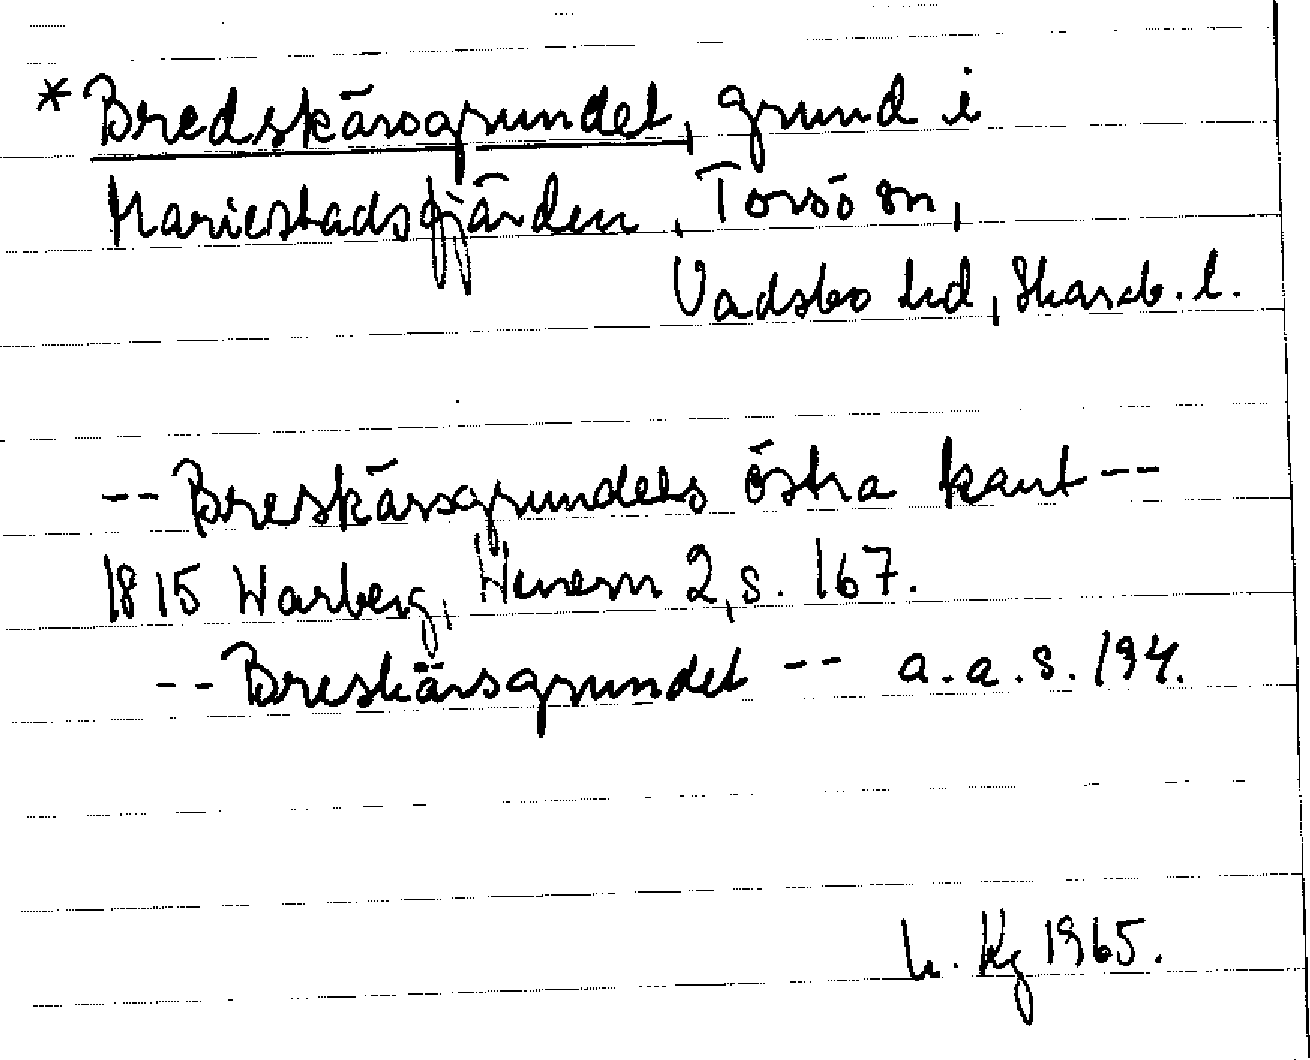 * Bredskärsgrundet, grund i
Mariestadsfjärden, Torsö sn,
Vadsbo hd, Skarab. l.
-- Breskärsgrundets östra kant --
1815 Warberg, Wenern 2, s. 167.
-- Breskärsgrundet -- a. a. s. 194.
Kg 1965.